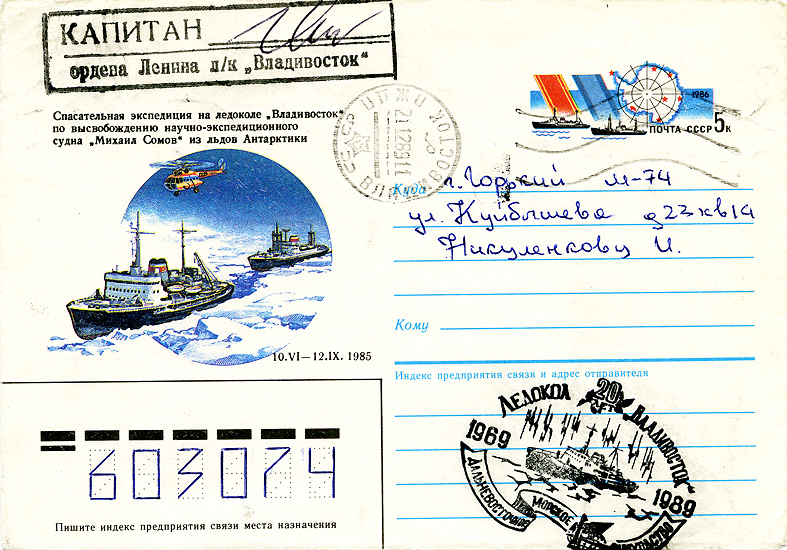 КАПИТАН
ордена Ленина л/к „Владивосток“
Спасательная экспедиция на ледоколе „Владивосток“
по высвобождению научно-экспедиционного
судна „Михаил Сомов“ из льдов Антарктики
10.VI—12.IX. 1985
1986
ПОЧТА СССР 5к
СССР
211289
Куда г. Горький М-74
ул. Куйбышева д23 кв14
Никуленкову И.
Кому
Индекс предприятия связи и адрес отправителя
603074
Пишите индекс предприятия связи места назначения
ЛЕДОКОЛ 20 ЛЕТ „ВЛАДИВОСТОК“
1969
1989
ДАЛЬНЕВОСТОЧНОЕ МОРСКОЕ